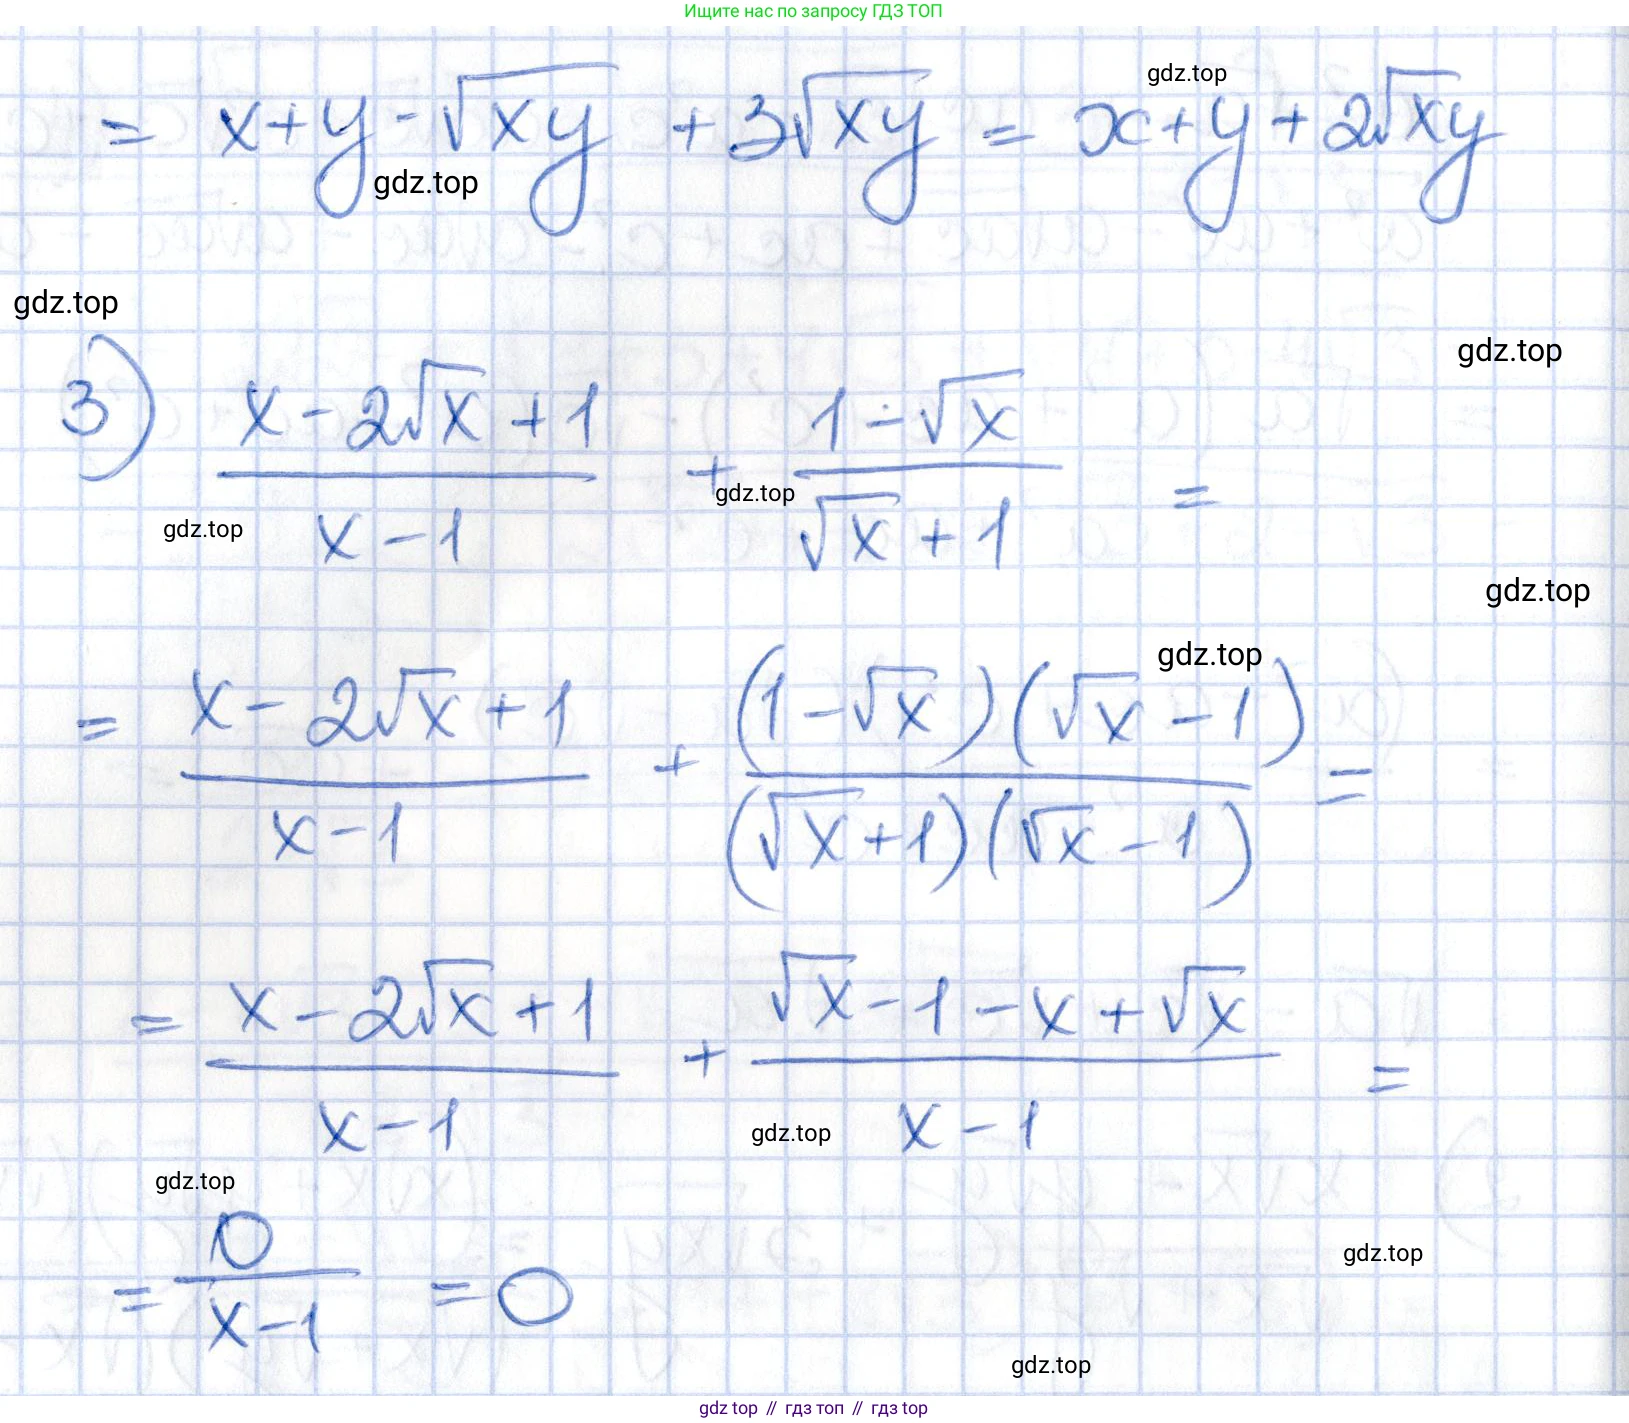 Ищите нас по запросу ГДЗ ТОП
gdz.top
= x + y - √xy + 3√xy = x + y + 2√xy
gdz.top
gdz.top
gdz.top
3) (x - 2√x + 1)/(x - 1) + (1 - √x)/(√x + 1) =
gdz.top
gdz.top
gdz.top
gdz.top
= (x - 2√x + 1)/(x - 1) + ((1 - √x)(√x - 1))/((√x + 1)(√x - 1)) =
= (x - 2√x + 1)/(x - 1) + (√x - 1 - x + √x)/(x - 1) =
gdz.top
gdz.top
= 0/(x - 1) = 0
gdz.top
gdz.top
gdz top // гдз топ // гдз top